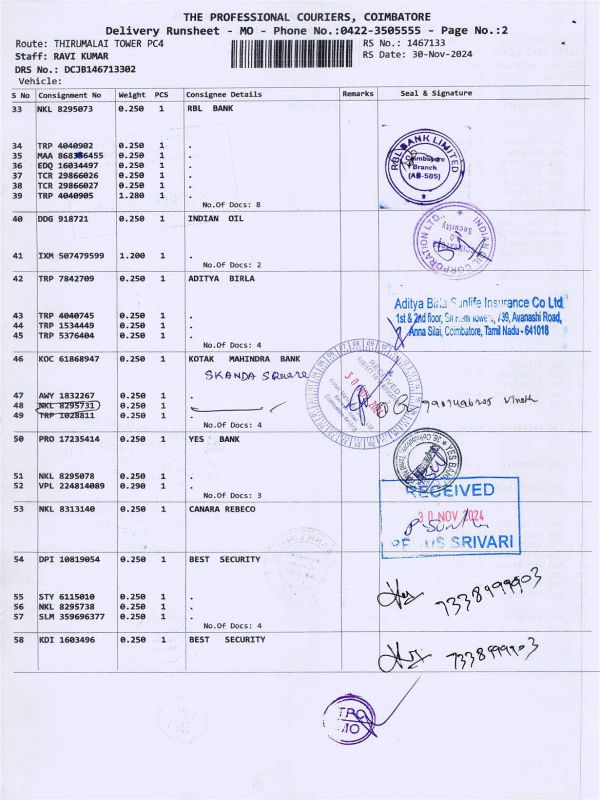 THE PROFESSIONAL COURIERS, COIMBATORE
Delivery Runsheet - MO - Phone No.:0422-3505555 - Page No.:2
Route: THIRUMALAI TOWER PC4
RS No.: 1467133
Staff: RAVI KUMAR
RS Date: 30-Nov-2024
DRS No.: DCJB146713302
Vehicle:
S No Consignment No Weight PCS Consignee Details Remarks Seal & Signature
33 NKL 8295073 0.250 1 RBL BANK
34 TRP 4040902 0.250 1 .
35 MAA 868336455 0.250 1 .
36 EDQ 16034497 0.250 1 .
37 TCR 29866026 0.250 1 .
38 TCR 29866027 0.250 1 .
39 TRP 4040905 1.280 1 .
No.Of Docs: 8
RBL BANK LIMITED
Coimbatore
Branch
(AB-585)
40 DDG 918721 0.250 1 INDIAN OIL
41 IXM 507479599 1.200 1 .
No.Of Docs: 2
INDIAN OIL CORPORATION LTD.,
Security
42 TRP 7842709 0.250 1 ADITYA BIRLA
43 TRP 4040745 0.250 1 .
44 TRP 1534449 0.250 1 .
45 TRP 5376404 0.250 1 .
No.Of Docs: 4
Aditya Birla Sunlife Insurance Co Ltd
1st & 2nd floor, Sri Towers, 739, Avanashi Road,
Anna Silai, Coimbatore, Tamil Nadu - 641018
46 KOC 61868947 0.250 1 KOTAK MAHINDRA BANK
SKANDA Square
47 AWY 1832267 0.250 1 .
48 NKL 8295731 0.250 1 .
49 TRP 1028811 0.250 1 .
No.Of Docs: 4
RECEIVED
50 PRO 17235414 0.250 1 YES BANK
51 NKL 8295078 0.250 1 .
52 VPL 224814089 0.290 1 .
No.Of Docs: 3
YES BANK
53 NKL 8313140 0.250 1 CANARA REBECO
RECEIVED
30 NOV 2024
SRIVARI
54 DPI 10819054 0.250 1 BEST SECURITY
55 STY 6115010 0.250 1 .
56 NKL 8295738 0.250 1 .
57 SLM 359696377 0.250 1 .
No.Of Docs: 4
7338999903
58 KDI 1603496 0.250 1 BEST SECURITY
7338999903
TPC
MO